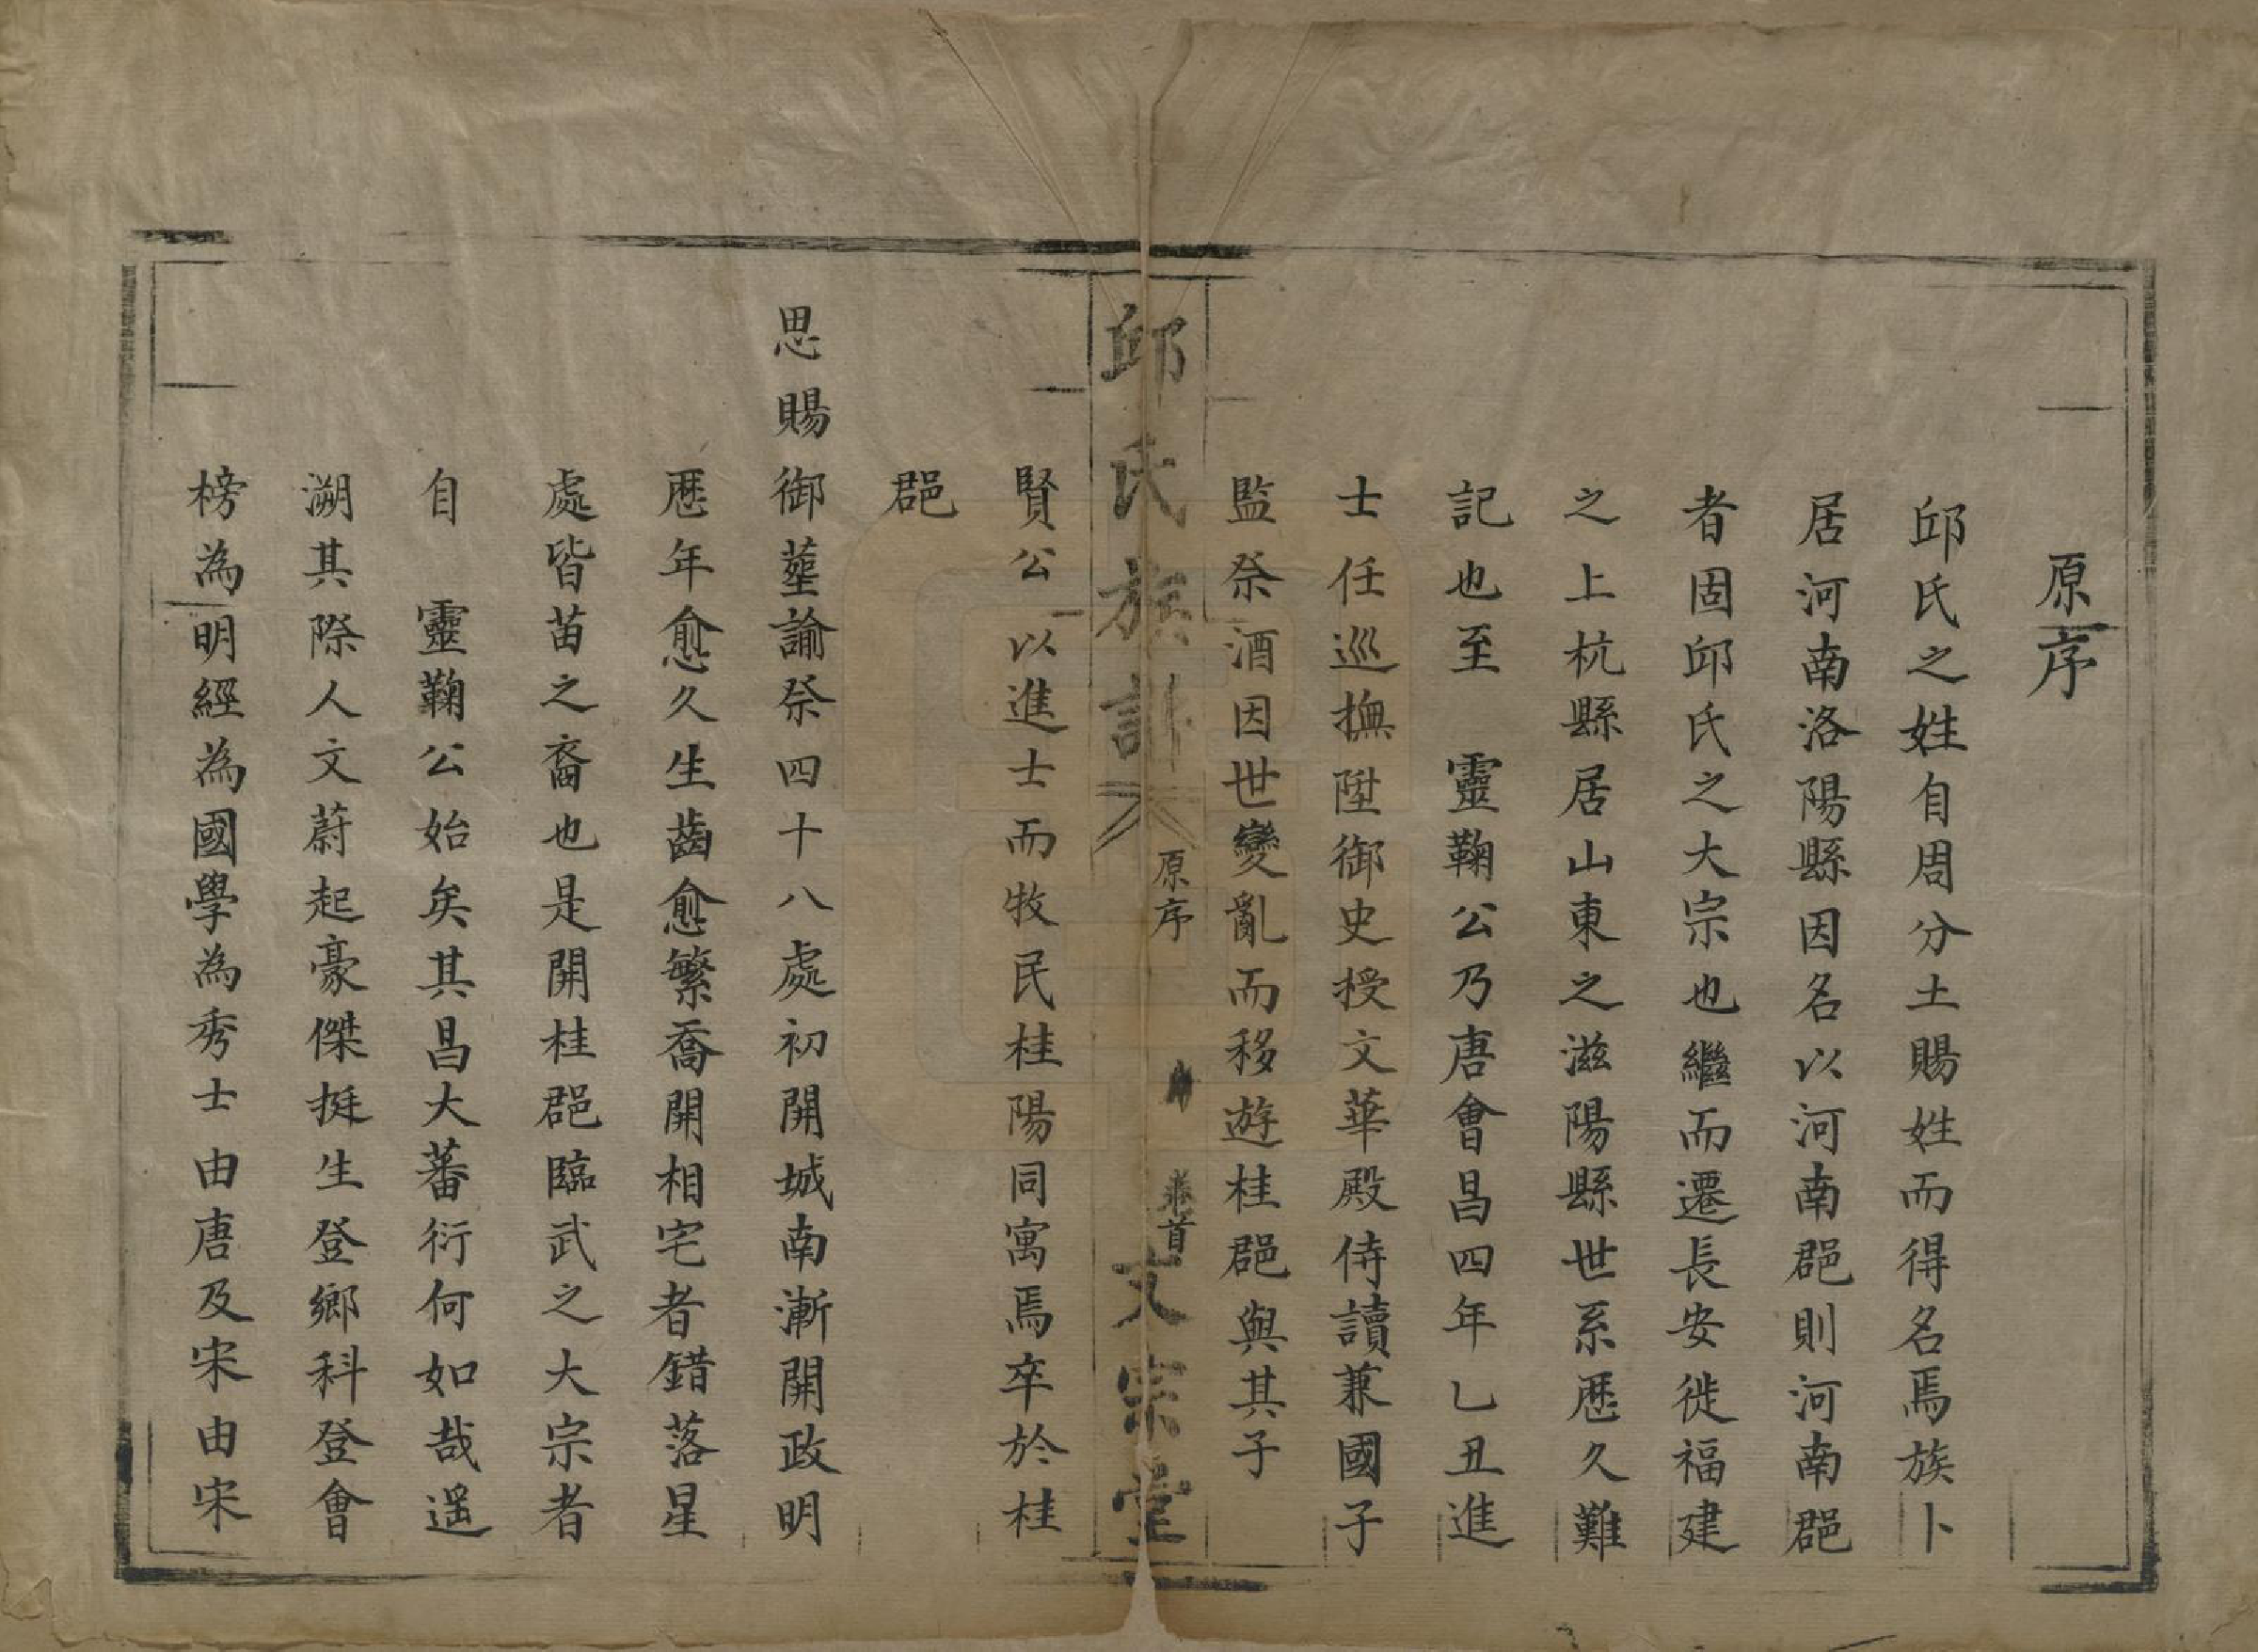 原序
邱氏之姓自周分土賜姓而得名焉族卜
居河南洛陽縣因名以河南郡則河南郡
者固邱氏之大宗也繼而遷長安徙福建
之上杭縣居山東之滋陽縣世系歷久難
記也至 靈鞠公乃唐會昌四年乙丑進
士任巡撫陞御史授文華殿侍讀兼國子
監祭酒因世變亂而移遊桂郡與其子
邱氏族譜
原序
卷首
文宗堂
賢公以進士而牧民桂陽同寓焉卒於桂
郡
思賜御塟諭祭四十八處初開城南漸開政明
歷年愈久生齒愈繁喬開相宅者錯落星
處皆苗之裔也是開桂郡臨武之大宗者
自 靈鞠公始矣其昌大蕃衍何如哉遥
溯其際人文蔚起豪傑挺生登鄉科登會
榜為明經為國學為秀士由唐及宋由宋